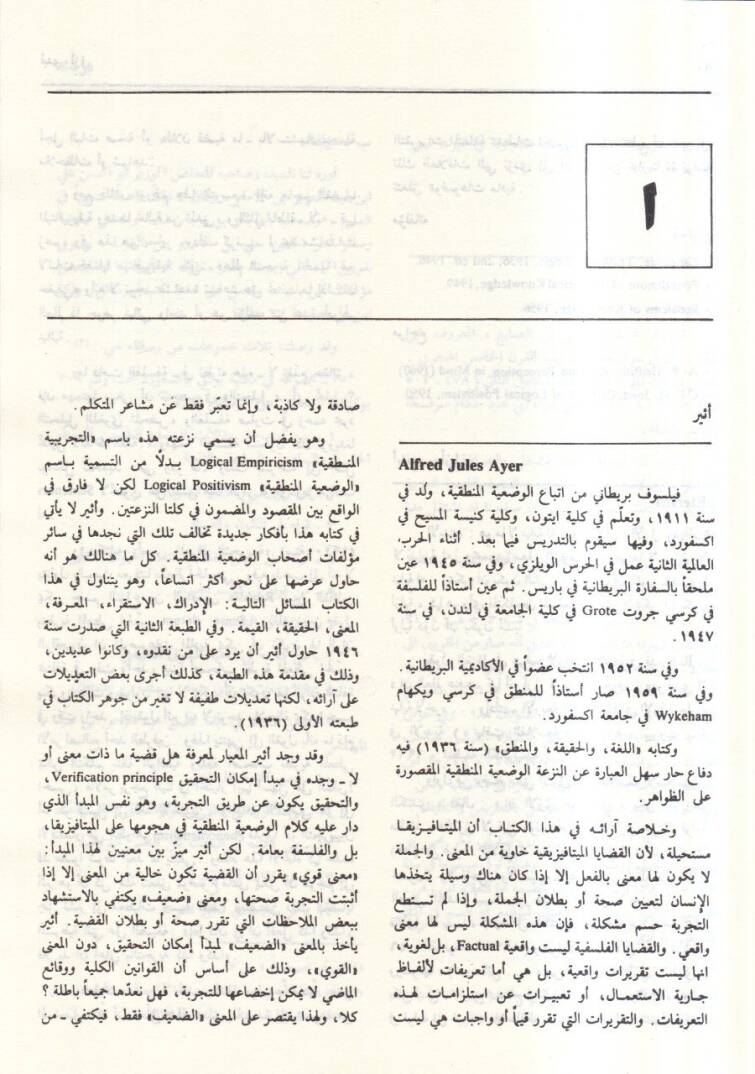 ا
أثير
Alfred Jules Ayer
فيلسوف بريطاني من اتباع الوضعية المنطقية، ولد في
سنة ١٩١١، وتعلّم في كلية ايتون، وكلية كنيسة المسيح في
اكسفورد، وفيها سيقوم بالتدريس فيما بعد. أثناء الحرب
العالمية الثانية عمل في الحرس الويلزي، وفي سنة ١٩٤٥ عين
ملحقاً بالسفارة البريطانية في باريس. ثم عين أستاذاً للفلسفة
في كرسي جروت Grote في كلية الجامعة في لندن، في سنة
١٩٤٧.
وفي سنة ١٩٥٢ انتخب عضواً في الأكاديمية البريطانية.
وفي سنة ١٩٥٩ صار أستاذاً للمنطق في كرسي ويكهام
Wykeham في جامعة اكسفورد.
وكتابه «اللغة، والحقيقة، والمنطق» (سنة ١٩٣٦) فيه
دفاع حار سهل العبارة عن النزعة الوضعية المنطقية المقصورة
على الظواهر.
وخلاصة آرائه في هذا الكتاب أن الميتافيزيقا
مستحيلة، لأن القضايا الميتافيزيقية خاوية من المعنى. والجملة
لا يكون لها معنى بالفعل إلا إذا كان هناك وسيلة يتخذها
الإنسان لتعيين صحة أو بطلان الجملة، وإذا لم تستطع
التجربة حسم مشكلة، فإن هذه المشكلة ليس لها معنى
واقعي. والقضايا الفلسفية ليست واقعية Factual، بل لغوية،
انها ليست تقريرات واقعية، بل هي أما تعريفات لألفاظ
جارية الاستعمال، أو تعبيرات عن استلزامات لهذه
التعريفات. والتقريرات التي تقرر قيماً أو واجبات هي ليست
صادقة ولا كاذبة، وإنما تعبّر فقط عن مشاعر المتكلم.
وهو يفضل أن يسمي نزعته هذه باسم «التجريبية
المنطقية» Logical Empiricism بدلاً من التسمية باسم
«الوضعية المنطقية» Logical Positivism لكن لا فارق في
الواقع بين المقصود والمضمون في كلتا النزعتين. وأثير لا يأتي
في كتابه هذا بأفكار جديدة تخالف تلك التي نجدها في سائر
مؤلفات أصحاب الوضعية المنطقية. كل ما هنالك هو أنه
حاول عرضها على نحو أكثر اتساعاً، وهو يتناول في هذا
الكتاب المسائل التالية: الإدراك، الاستقراء، المعرفة،
المعنى، الحقيقة، القيمة. وفي الطبعة الثانية التي صدرت سنة
١٩٤٦ حاول أثير أن يرد على من نقدوه، وكانوا عديدين،
وذلك في مقدمة هذه الطبعة، كذلك أجرى بعض التعديلات
على آرائه، لكنها تعديلات طفيفة لا تغير من جوهر الكتاب في
طبعته الأولى (١٩٣٦).
وقد وجد أثير المعيار لمعرفة هل قضية ما ذات معنى أو
لا ـ وجده في مبدأ إمكان التحقيق Verification principle،
والتحقيق يكون عن طريق التجربة، وهو نفس المبدأ الذي
دار عليه كلام الوضعية المنطقية في هجومها على الميتافيزيقا،
بل والفلسفة بعامة. لكن أثير ميّز بين معنيين لهذا المبدأ:
«معنى قوي» يقرر أن القضية تكون خالية من المعنى إلا إذا
أثبتت التجربة صحتها، ومعنى «ضعيف» يكتفي بالاستشهاد
ببعض الملاحظات التي تقرر صحة أو بطلان القضية. أثير
يأخذ بالمعنى «الضعيف» لمبدأ إمكان التحقيق، دون المعنى
«القوي»، وذلك على أساس أن القوانين الكلية ووقائع
الماضي لا يمكن إخضاعها للتجربة، فهل نعدّها جميعاً باطلة؟
كلا، ولهذا يقتصر على المعنى «الضعيف» فقط، فيكتفي ـ من